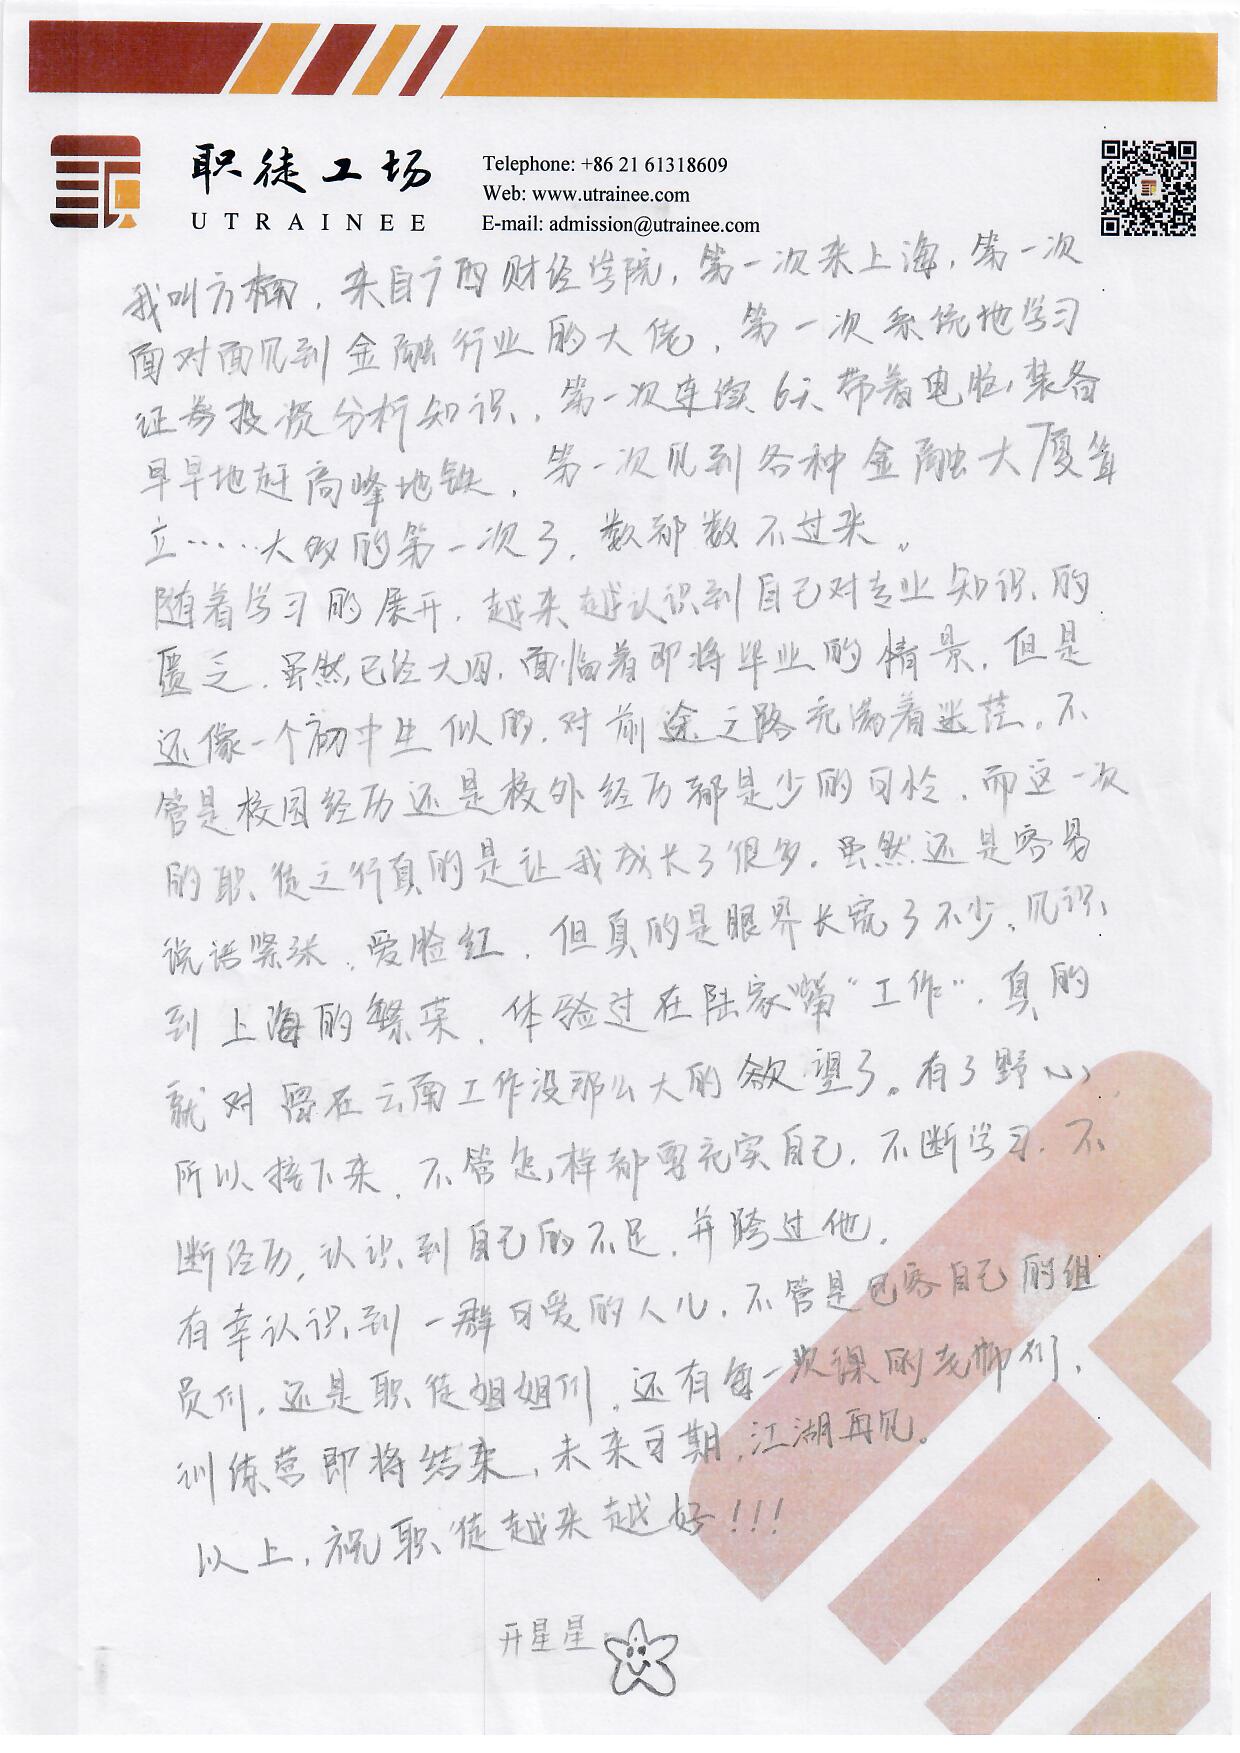 职徒工场
UTRAINEE
Telephone: +86 21 61318609
Web: www.utrainee.com
E-mail: admission@utrainee.com
我叫方楠，来自广西财经学院，第一次来上海，第一次
面对面见到金融行业的大佬，第一次系统地学习
证券投资分析知识，第一次连续6天带着电脑，装备
早早地赶高峰地铁，第一次见到各种金融大厦耸
立……太多的第一次了，数都数不过来。
随着学习的展开，越来越认识到自己对专业知识的
匮乏，虽然已经大四，面临着即将毕业的情景，但是
还像一个初中生似的，对前途之路充满着迷茫。不
管是校园经历还是校外经历都是少的可怜，而这一次
的职徒之行真的是让我成长了很多。虽然还是容易
说话紧张，爱脸红，但真的是眼界长宽了不少，见识
到上海的繁荣，体验过在陆家嘴“工作”，真的
就对留在云南工作没那么大的欲望了。有了野心，
所以接下来，不管怎样都要充实自己，不断学习，不
断经历，认识到自己的不足，并跨过他。
有幸认识到一群可爱的人儿，不管是包容自己的组
员们，还是职徒姐姐们，还有每一次课的老师们，
训练营即将结束，未来可期，江湖再见。
以上，祝职徒越来越好！！！
开星星